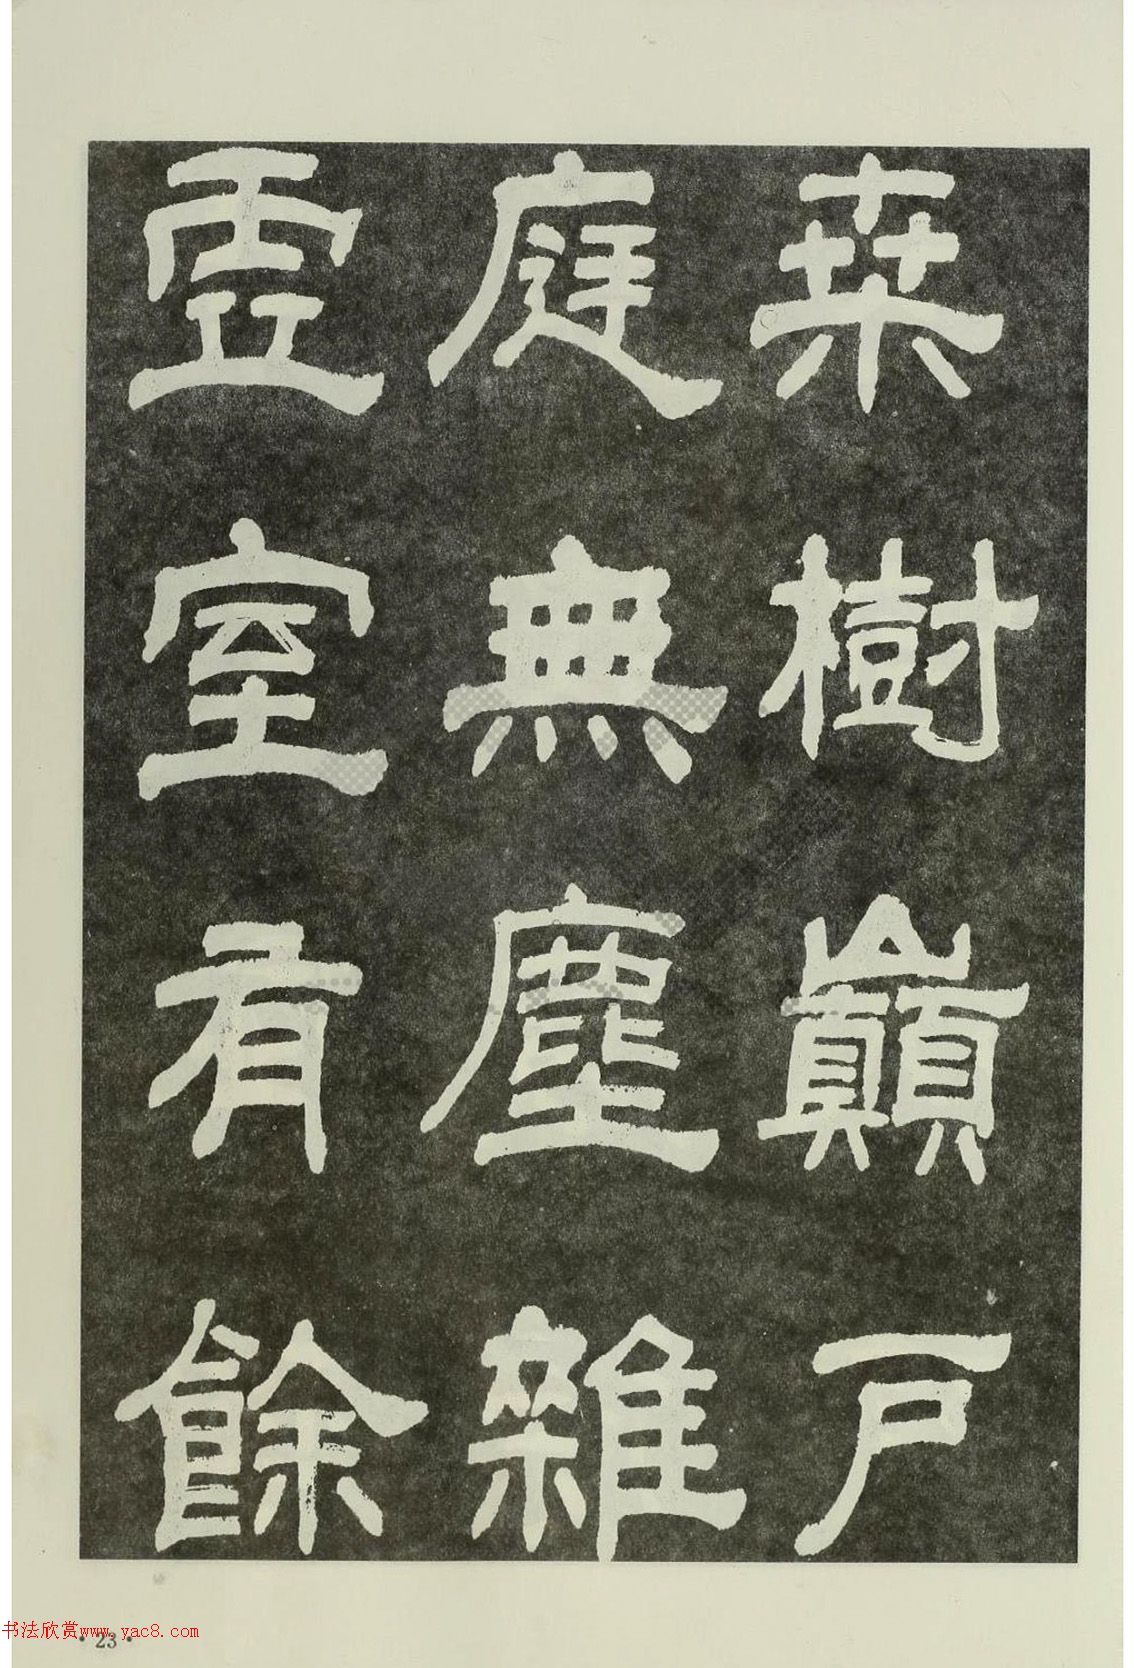 桒樹巔戶
庭無塵雜
虛室有餘
书法欣赏www.yac8.com
·23·